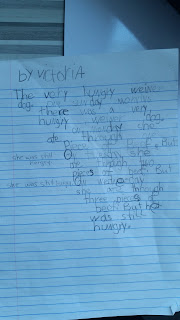 by victoriA
The very hungry weiner
dog. one sunday morning
there was a very
hungry weiner dog.
On monday she
ate through
one peice of Beef. But
she was still hungry
On tuesday she
ate through two
pieces of beef. But
she was still hungry. On wednesday
she ate through
three pieces of
beef. But
was still
hungry.